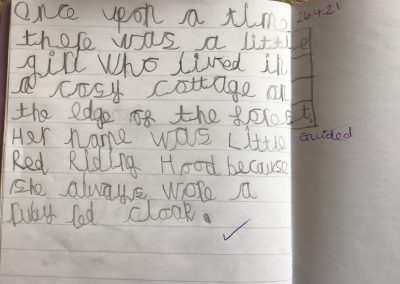 Once upon a time 26.4.21
there was a little
girl who lived in
a cosy cottage on
the edge of the forest.
Her name was Little Guided
Red Riding Hood because
she always wore a
ruby red cloak.